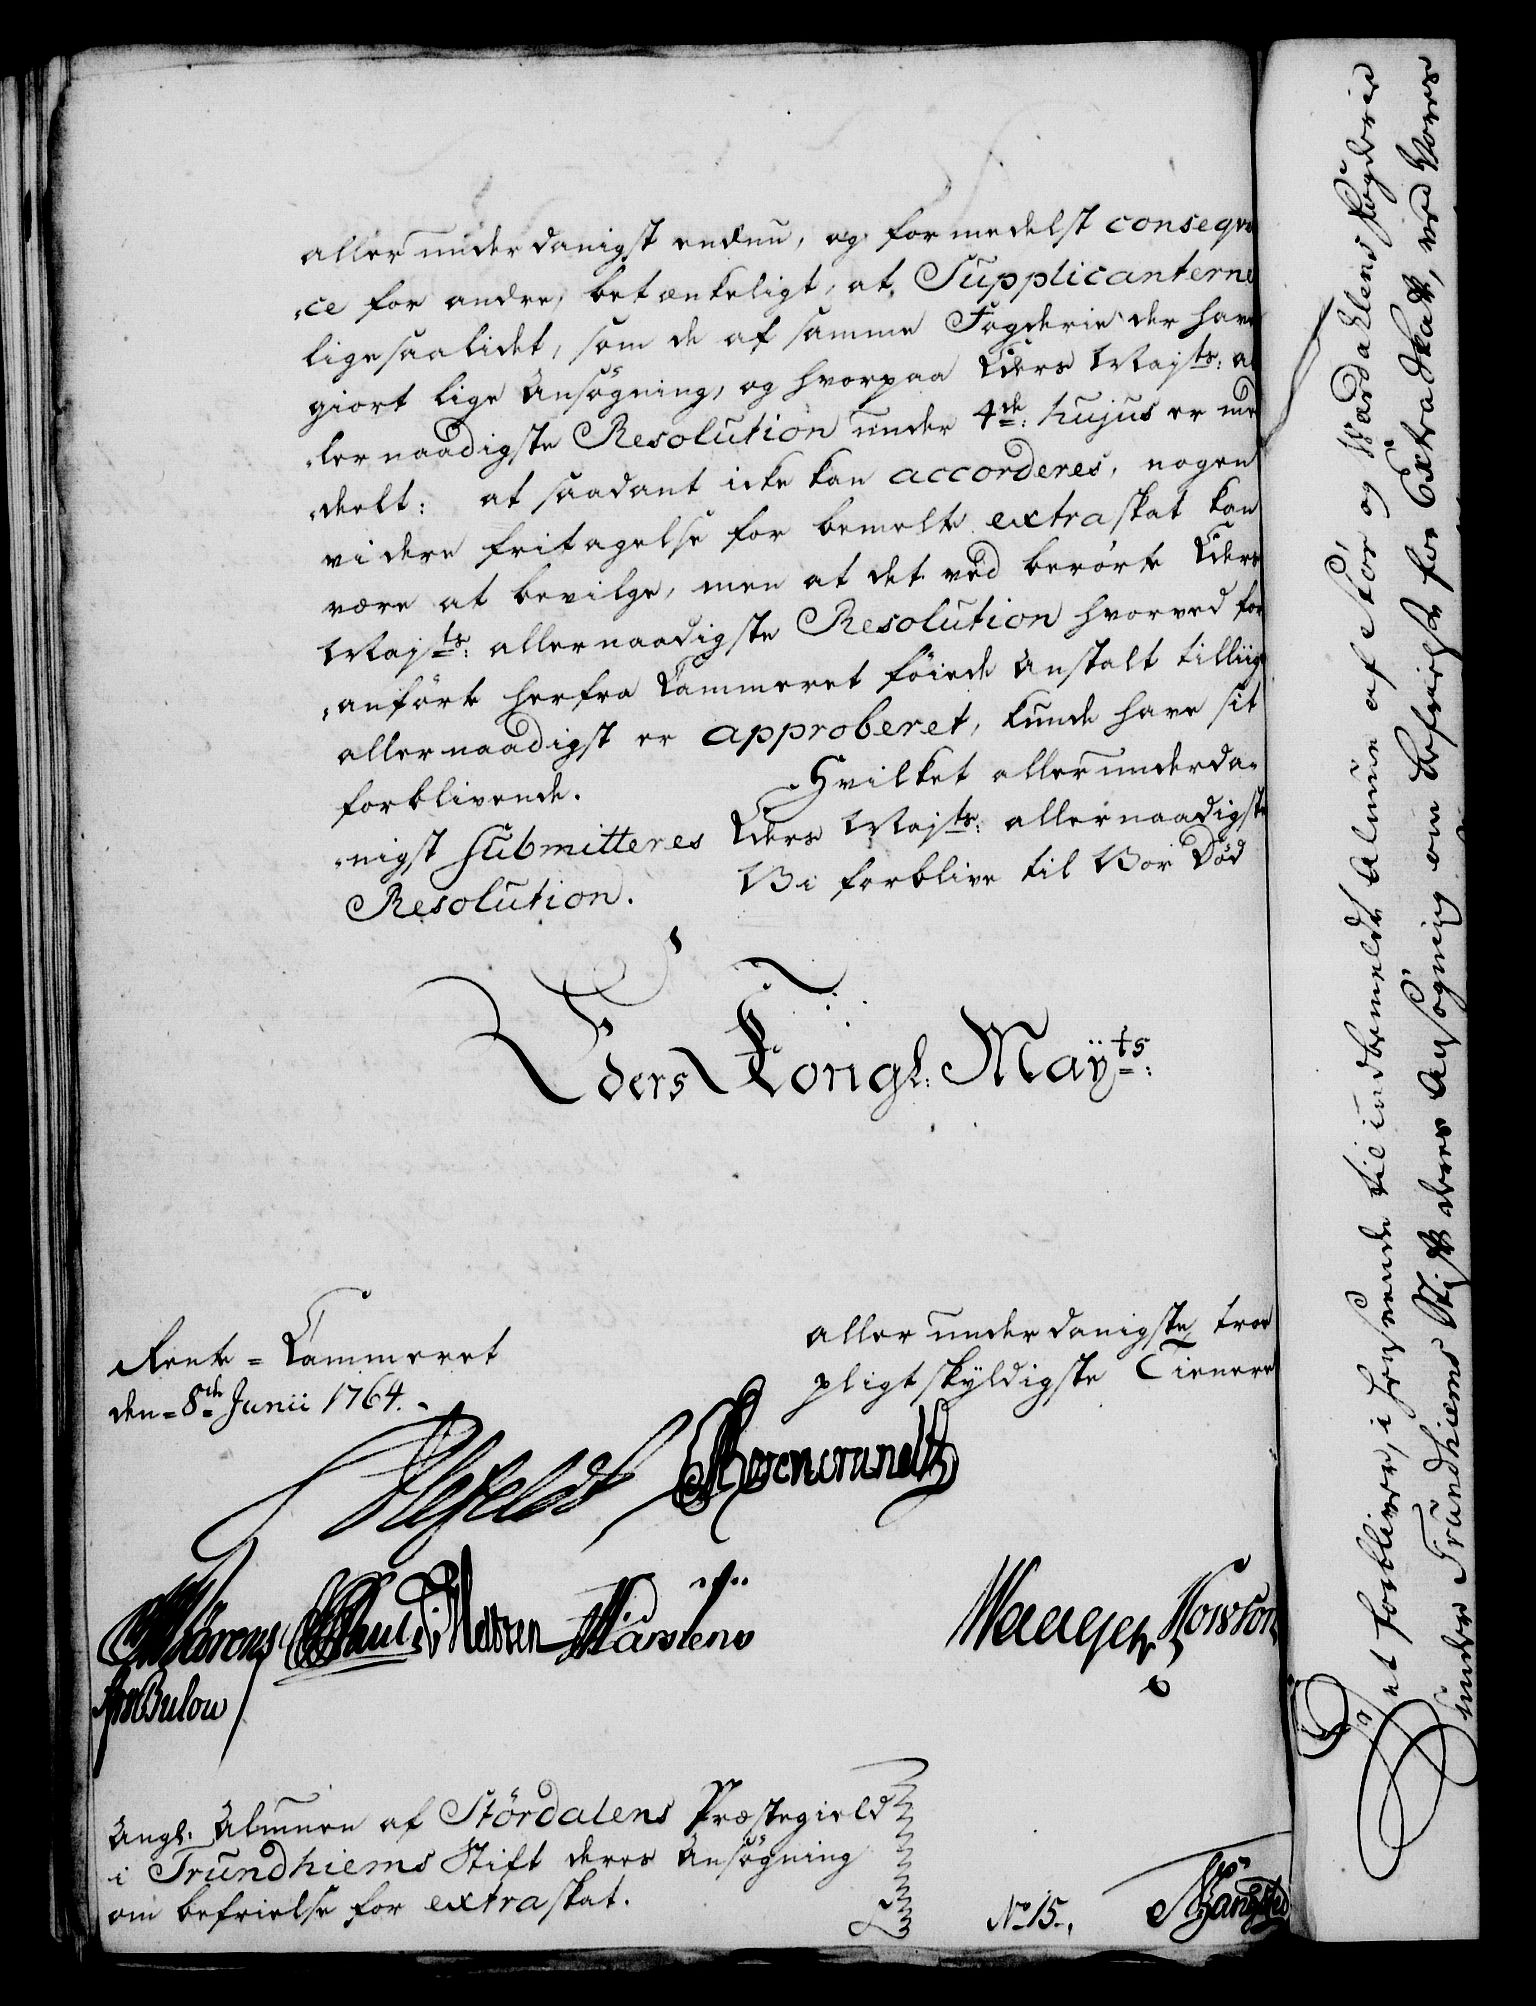 allerunderdanigst endnu, og formedelst conseqv
„ce for andre, betænkeligt, at Supplicanterne
ligesaalidet, som de af samme Fogderie der have
giort lige Ansøgning, og hvorpaa Eders Majts: al
„lernaadigste Resolution under 4de: hujus er med
„deelt: at saadant icke kan accorderes, nogen
videre fritagelse for bemelte extraskat kan
være at bevilge, men at det ved berørte Eders
Majts: allernaadigste Resolution hvorved for
„anførte herfra Cammeret føiede Anstalt tilliige
allernaadigst er approberet, kunde have sit
forblivende.
Hvilket allerunderda„
„nigst submitteres Eders Majts: allernaadigste
Resolution.
Vi forblive til Vor Død
Eders Kongl: Maÿts:
Rente=Cammeret
den=8de Junii 1764.
allerunderdanigste, troe
pligtskÿldigste Tienere
Ahlefeldt
Rosencrandtz
Karstens
Bulow
Angl. Almuen af Stördalens Præstegield
i Trundhiems Stift deres Ansøgning
om befrielse for extraskat.
No 15.
Det forbliver, i henseende til indbemeldte Almue af Stör og Værdahlens Fogderie
under Trundhiems Stift deres Ansøgning om befrielse for Extraskatt, ved Vores